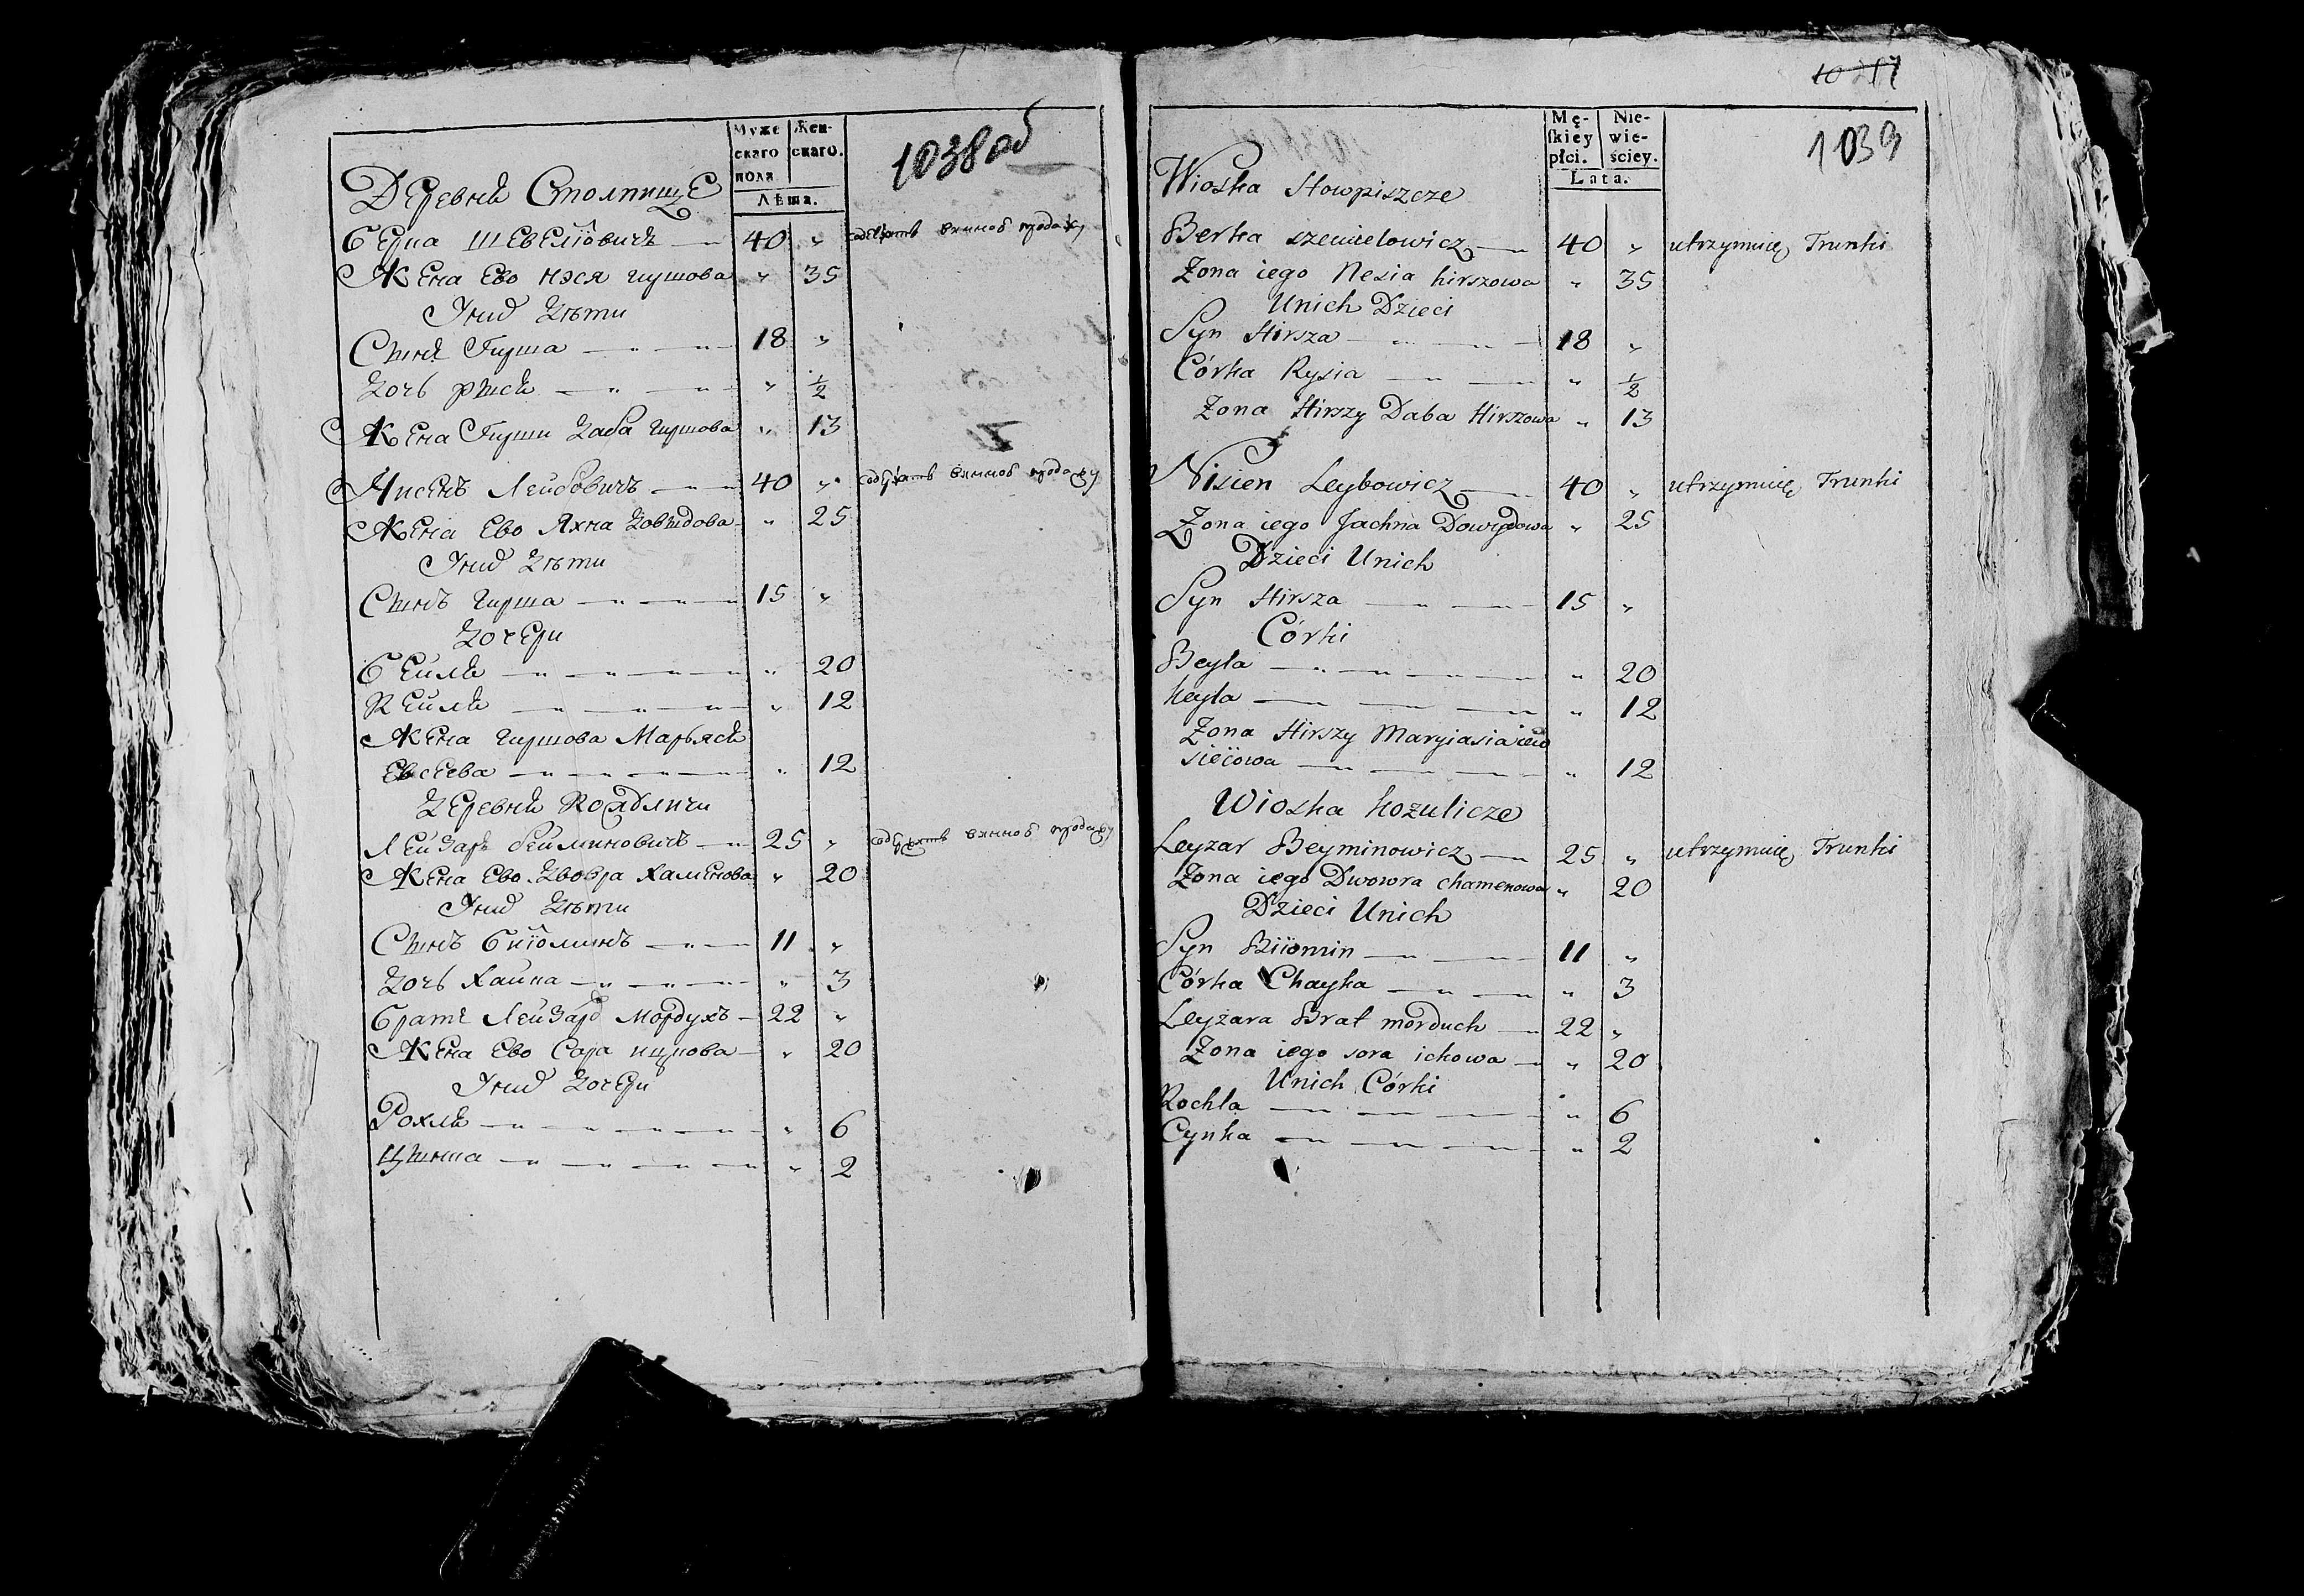 1038 об
Муже
скаго
пола
Жен-
скаго.
Лѣта.
Деревня Столпище
Берка Шевелiовичъ 40 „ содержитъ виннов продажу
Жена Ево Нэся гиршова „ 35
Унид Дѣти
Сынъ Гирша 18 „
Дочь рыся „ 1/2
Жена Гирши Даба гиршова „ 13
Нисенъ Лейбовичъ 40 „ содержитъ виннов продажу
Жена Ево Яхна Довыдова „ 25
Унид Дѣти
Сынъ гирша 15 „
Дочери
Бейля „ 20
Кейля „ 12
Жена гиршова Марьяся
Евсеева „ 12
Деревня
Лейзаръ беиминовичъ 25 „ содержитъ виннов продажу
Жена Ево Двовра Хаменова „ 20
Унид Дѣти
Сынъ Биiоминъ 11 „
Дочь Хайка „ 3
Братъ Лейзара Мордухъ 22 „
Жена Ево Сора ицкова „ 20
Унид Дочери
Рохля „ 6
Цынка „ 2
1039
Mę-
skiey
płci.
Nie-
wie-
ściey.
Lata.
Wioska Stowpiszcze
Berka szewelowicz 40 „ utrzymuię Trunki
Zona iego Nesia hirszowa „ 35
Unich Dzieci
Syn Hirsza 18 „
Córka Rysia „ 1/2
Zona Hirszy Daba Hirszowa „ 13
Nisien Leybowicz 40 „ utrzymuię Trunki
Zona iego Jachna Dowydowa „ 25
Dzieci Unich
Syn Hirsza 15 „
Córki
Beyla „ 20
keyla „ 12
Zona Hirszy Maryiasia iew
sieiowa „ 12
Wioska kozulicze
Leyzar Beyminowicz 25 „ utrzymuię Trunki
Zona iego Dwowra chamenowa „ 20
Dzieci Unich
Syn Biiomin 11 „
Córka Chayka „ 3
Leyzara Brat morduch 22 „
Zona iego sora ickowa „ 20
Unich Córki
Rochla „ 6
Cynka „ 2